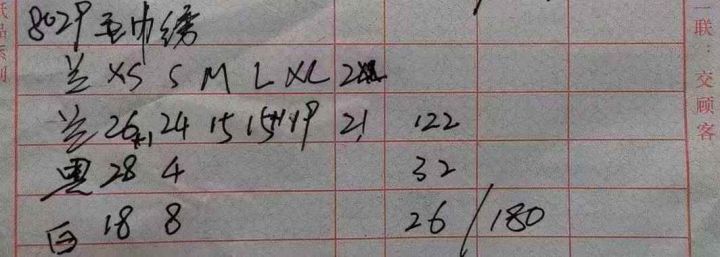 8029 毛巾绣
兰 XS S M L XL 2XL
兰 26+1 24 15 15+1 19 21 122
黑 28 4 32
白 18 8 26 / 180
一联：交顾客